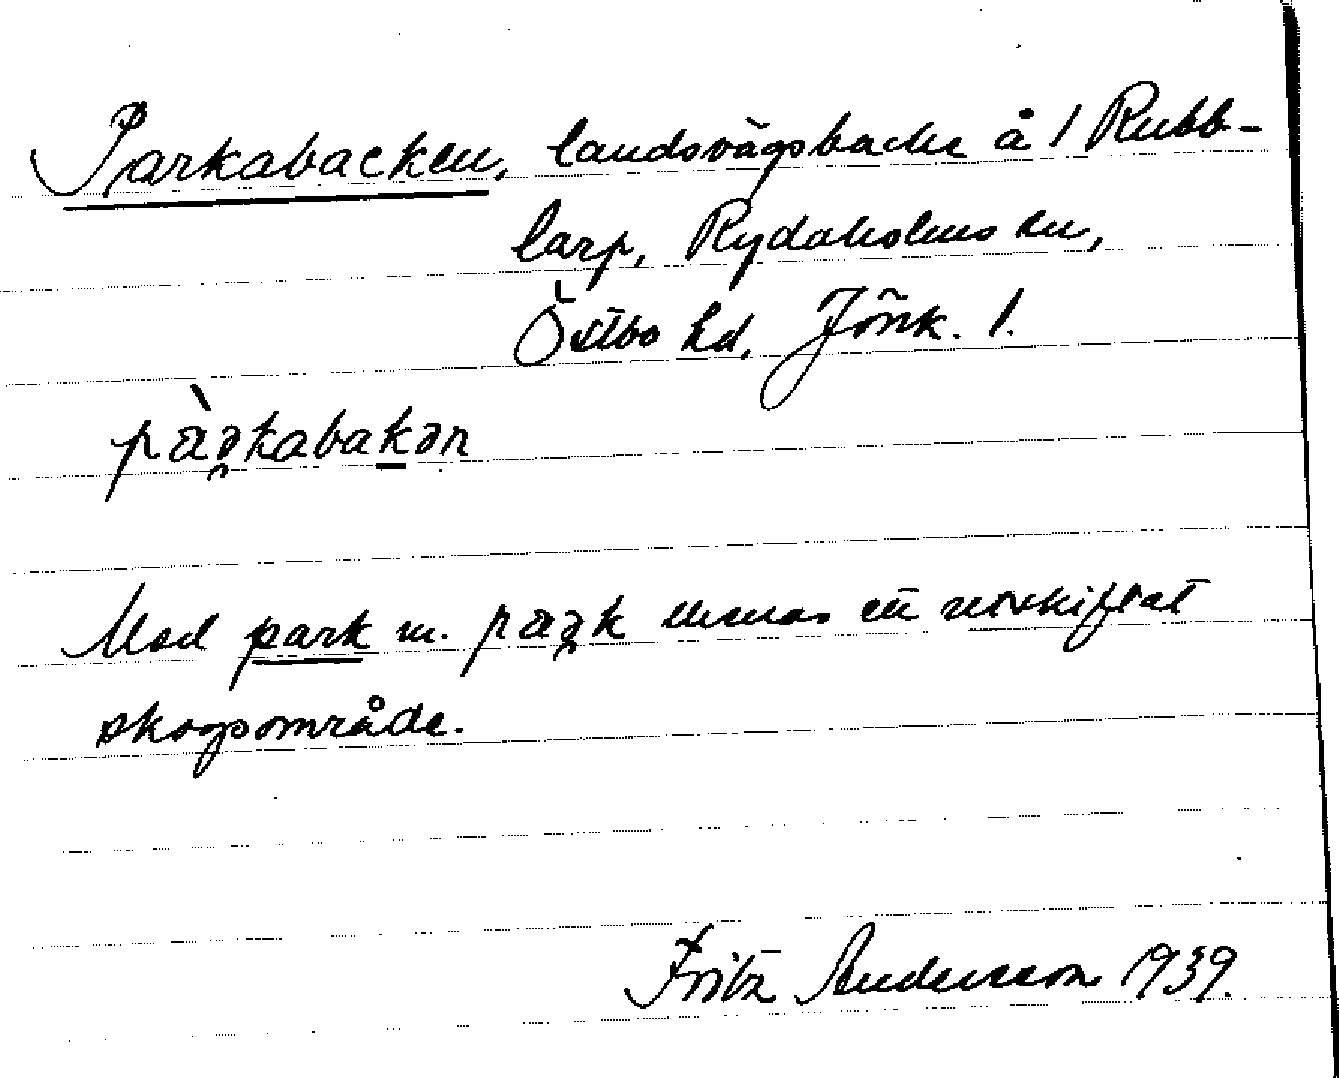 Parkabacken, landsvägsbacke å 1 Rubb-
larp, Rydaholms sn,
Östbo hd, Jönk. l.
pàə̯kabakən
Med park m. paə̯k menas ett utskiftat
skogsområde.
Fritz Andersson 1939.